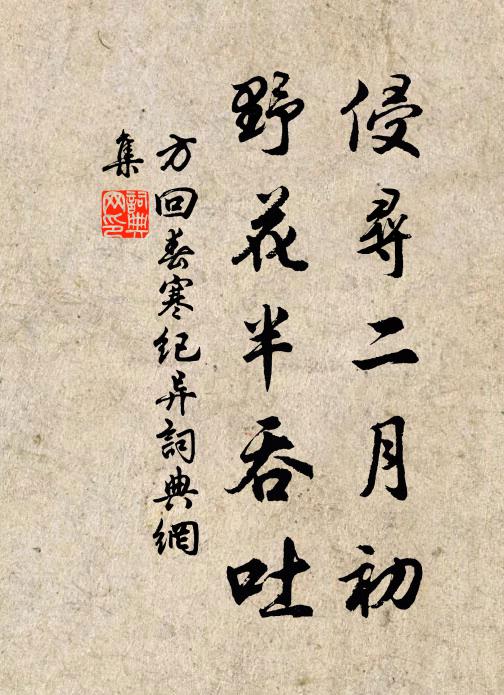 侵尋二月初
野花半吞吐
方回春寒纪异詞典網
集
詞典
网印